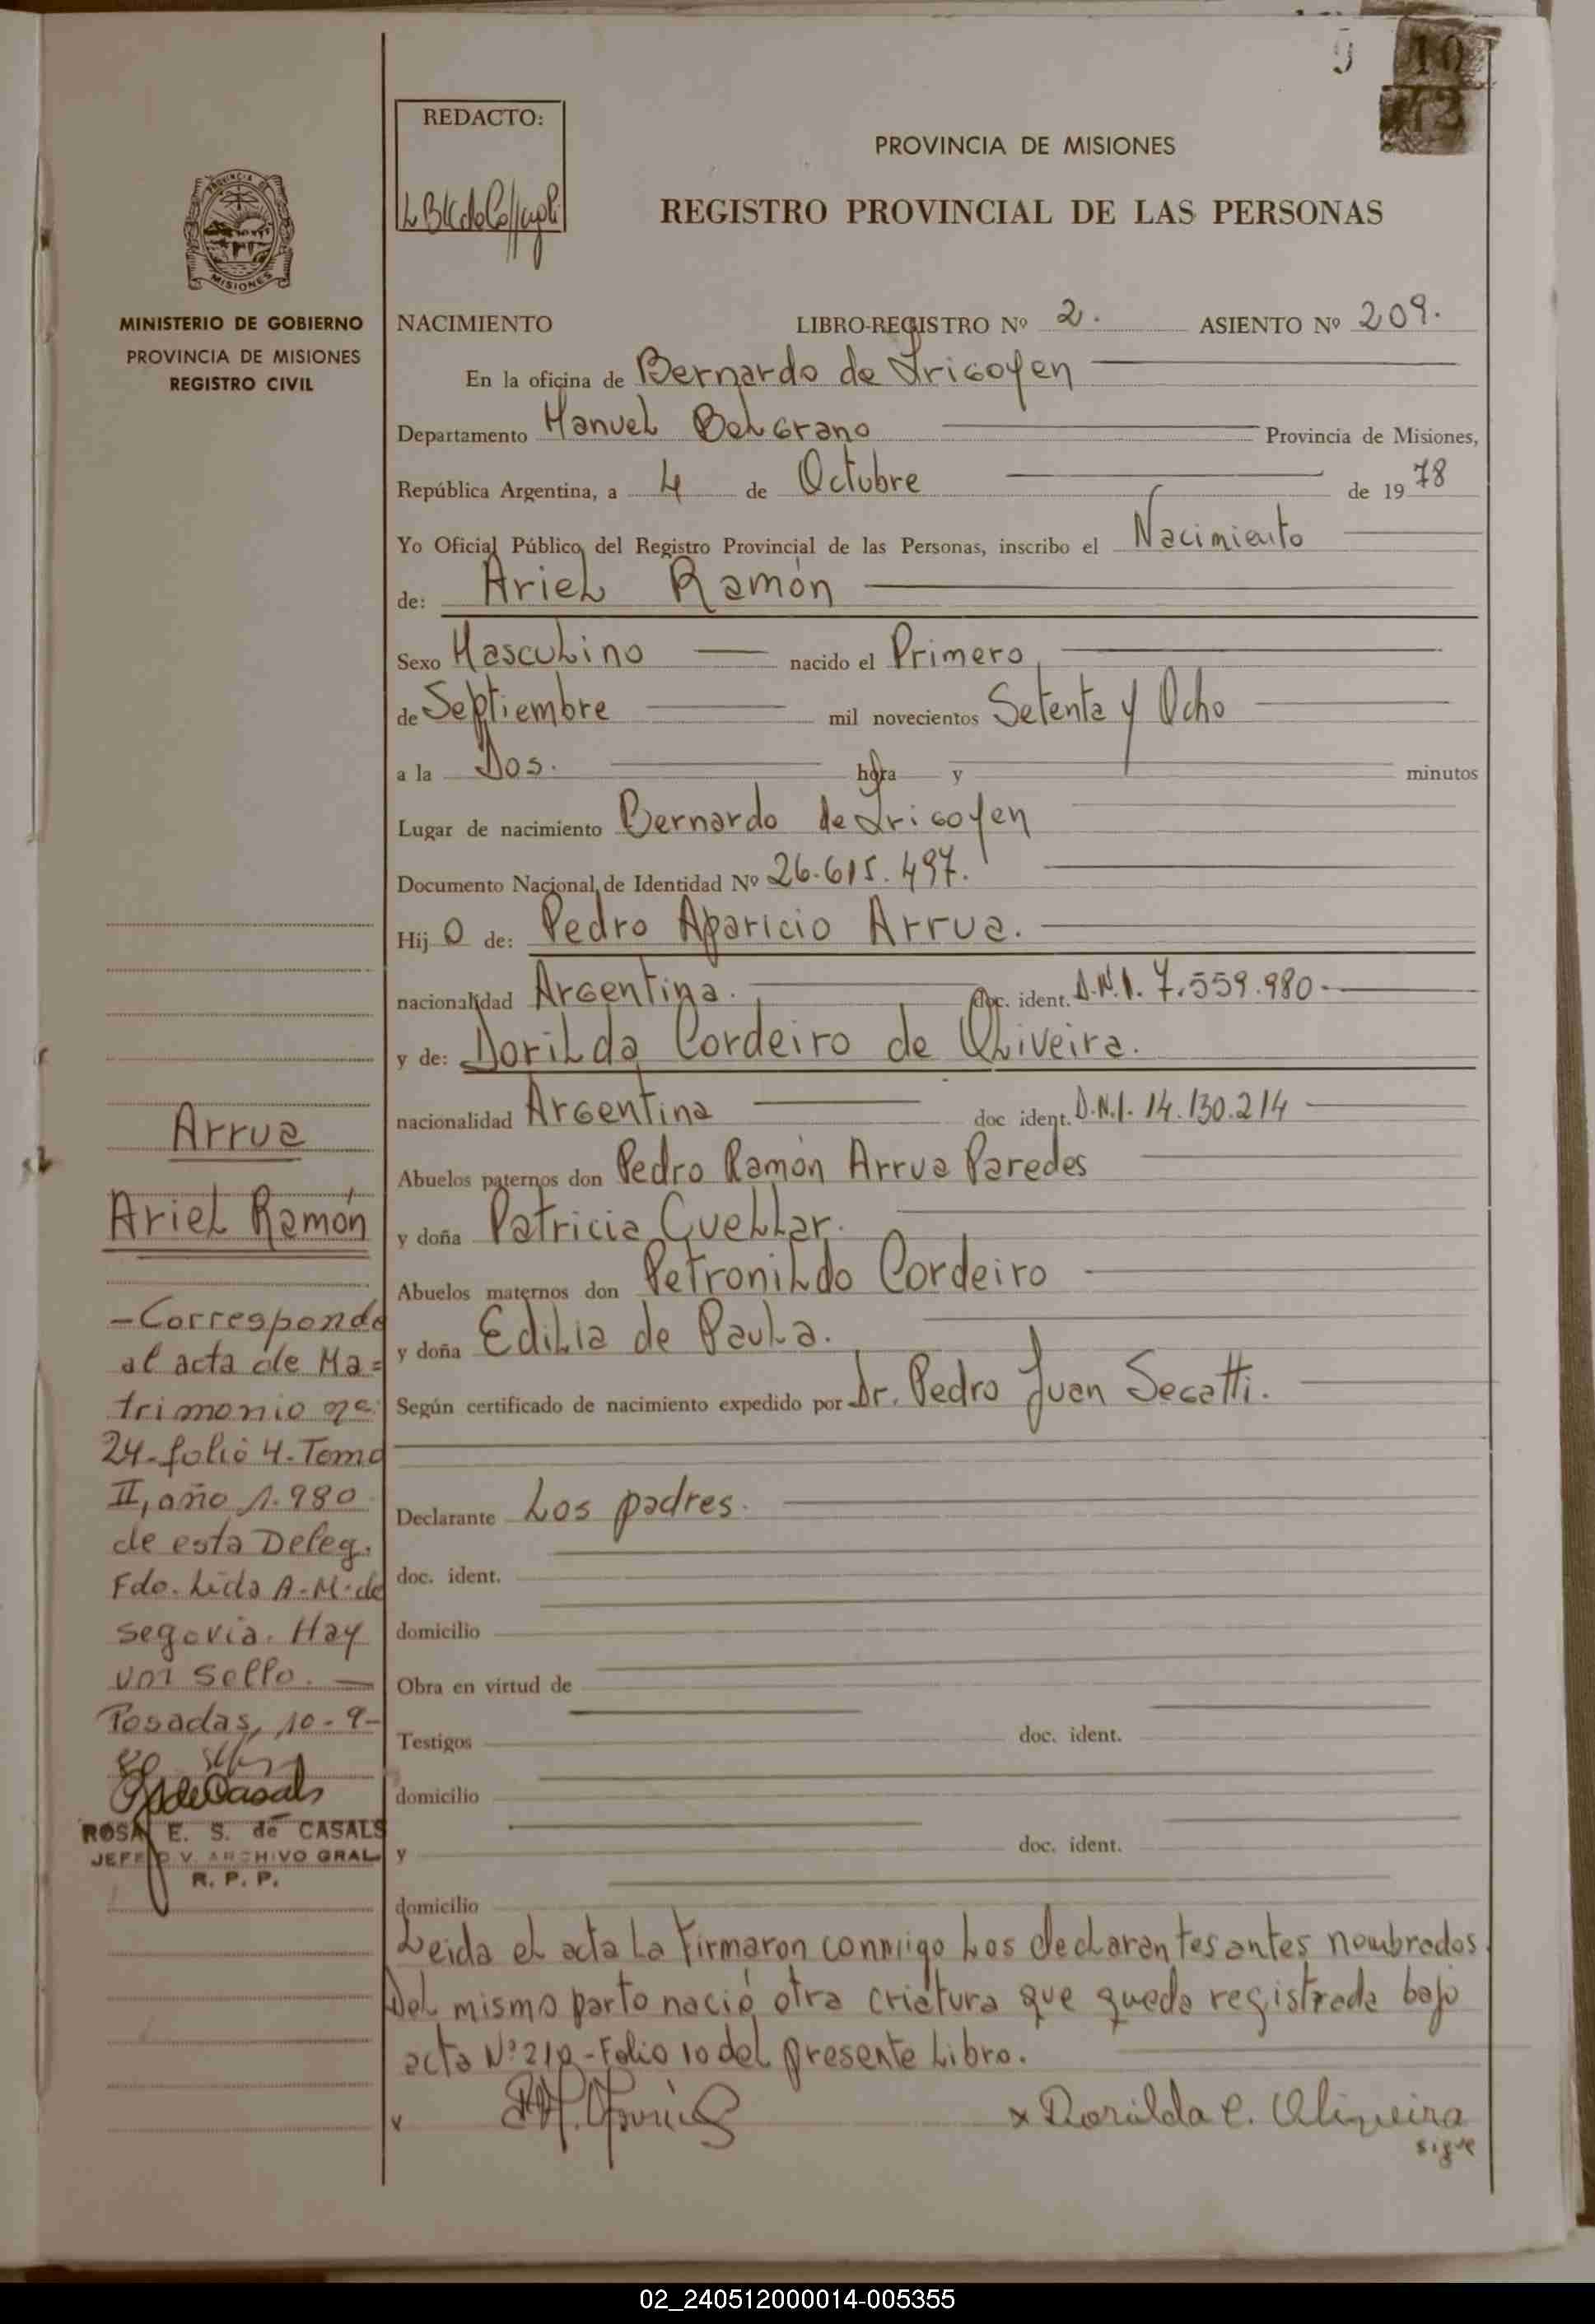 9 10
REDACTO:
PROVINCIA DE MISIONES
REGISTRO PROVINCIAL DE LAS PERSONAS
PROVINCIA DE
MISIONES
MINISTERIO DE GOBIERNO
PROVINCIA DE MISIONES
REGISTRO CIVIL
NACIMIENTO LIBRO-REGISTRO Nº 2. ASIENTO Nº 209.
En la oficina de Bernardo de Irigoyen
Departamento Manuel Belgrano Provincia de Misiones,
República Argentina, a 4 de Octubre de 1978
Yo Oficial Público del Registro Provincial de las Personas, inscribo el Nacimiento
de: Ariel Ramón
Sexo Masculino nacido el Primero
de Septiembre mil novecientos Setenta y Ocho
a la Dos. hora y minutos
Lugar de nacimiento Bernardo de Irigoyen
Documento Nacional de Identidad Nº 26.615.497.
Hijo de: Pedro Aparicio Arrua.
nacionalidad Argentina. doc. ident. D.N.I. 7.559.980.
y de: Dorilda Cordeiro de Oliveira.
nacionalidad Argentina doc ident. D.N.I. 14.130.214
Abuelos paternos don Pedro Ramón Arrua Paredes
y doña Patricia Cuellar.
Abuelos maternos don Petronildo Cordeiro
y doña Edilia de Paula.
Según certificado de nacimiento expedido por Dr. Pedro Juan Secatti.
Declarante Los padres.
doc. ident.
domicilio
Obra en virtud de
Testigos doc. ident.
domicilio
y doc. ident.
domicilio
Leida el acta la firmaron conmigo los declarantes antes nombrados
Del mismo parto nació otra criatura que queda registrada bajo
acta Nº 210 - Folio 10 del presente Libro.
x Dorilda C. Oliveira
sigue
Arrua
Ariel Ramón
- Corresponde
al acta de Ma=
trimonio nº
24-folio 4-Tomo
II, año 1.980
de esta Deleg.
Fdo. Lida A. M. de
Segovia. Hay
un sello.
Posadas, 10-9-
ROSA E. S. de CASALS
JEFE D V. ARCHIVO GRAL
R. P. P.
02_240512000014-005355